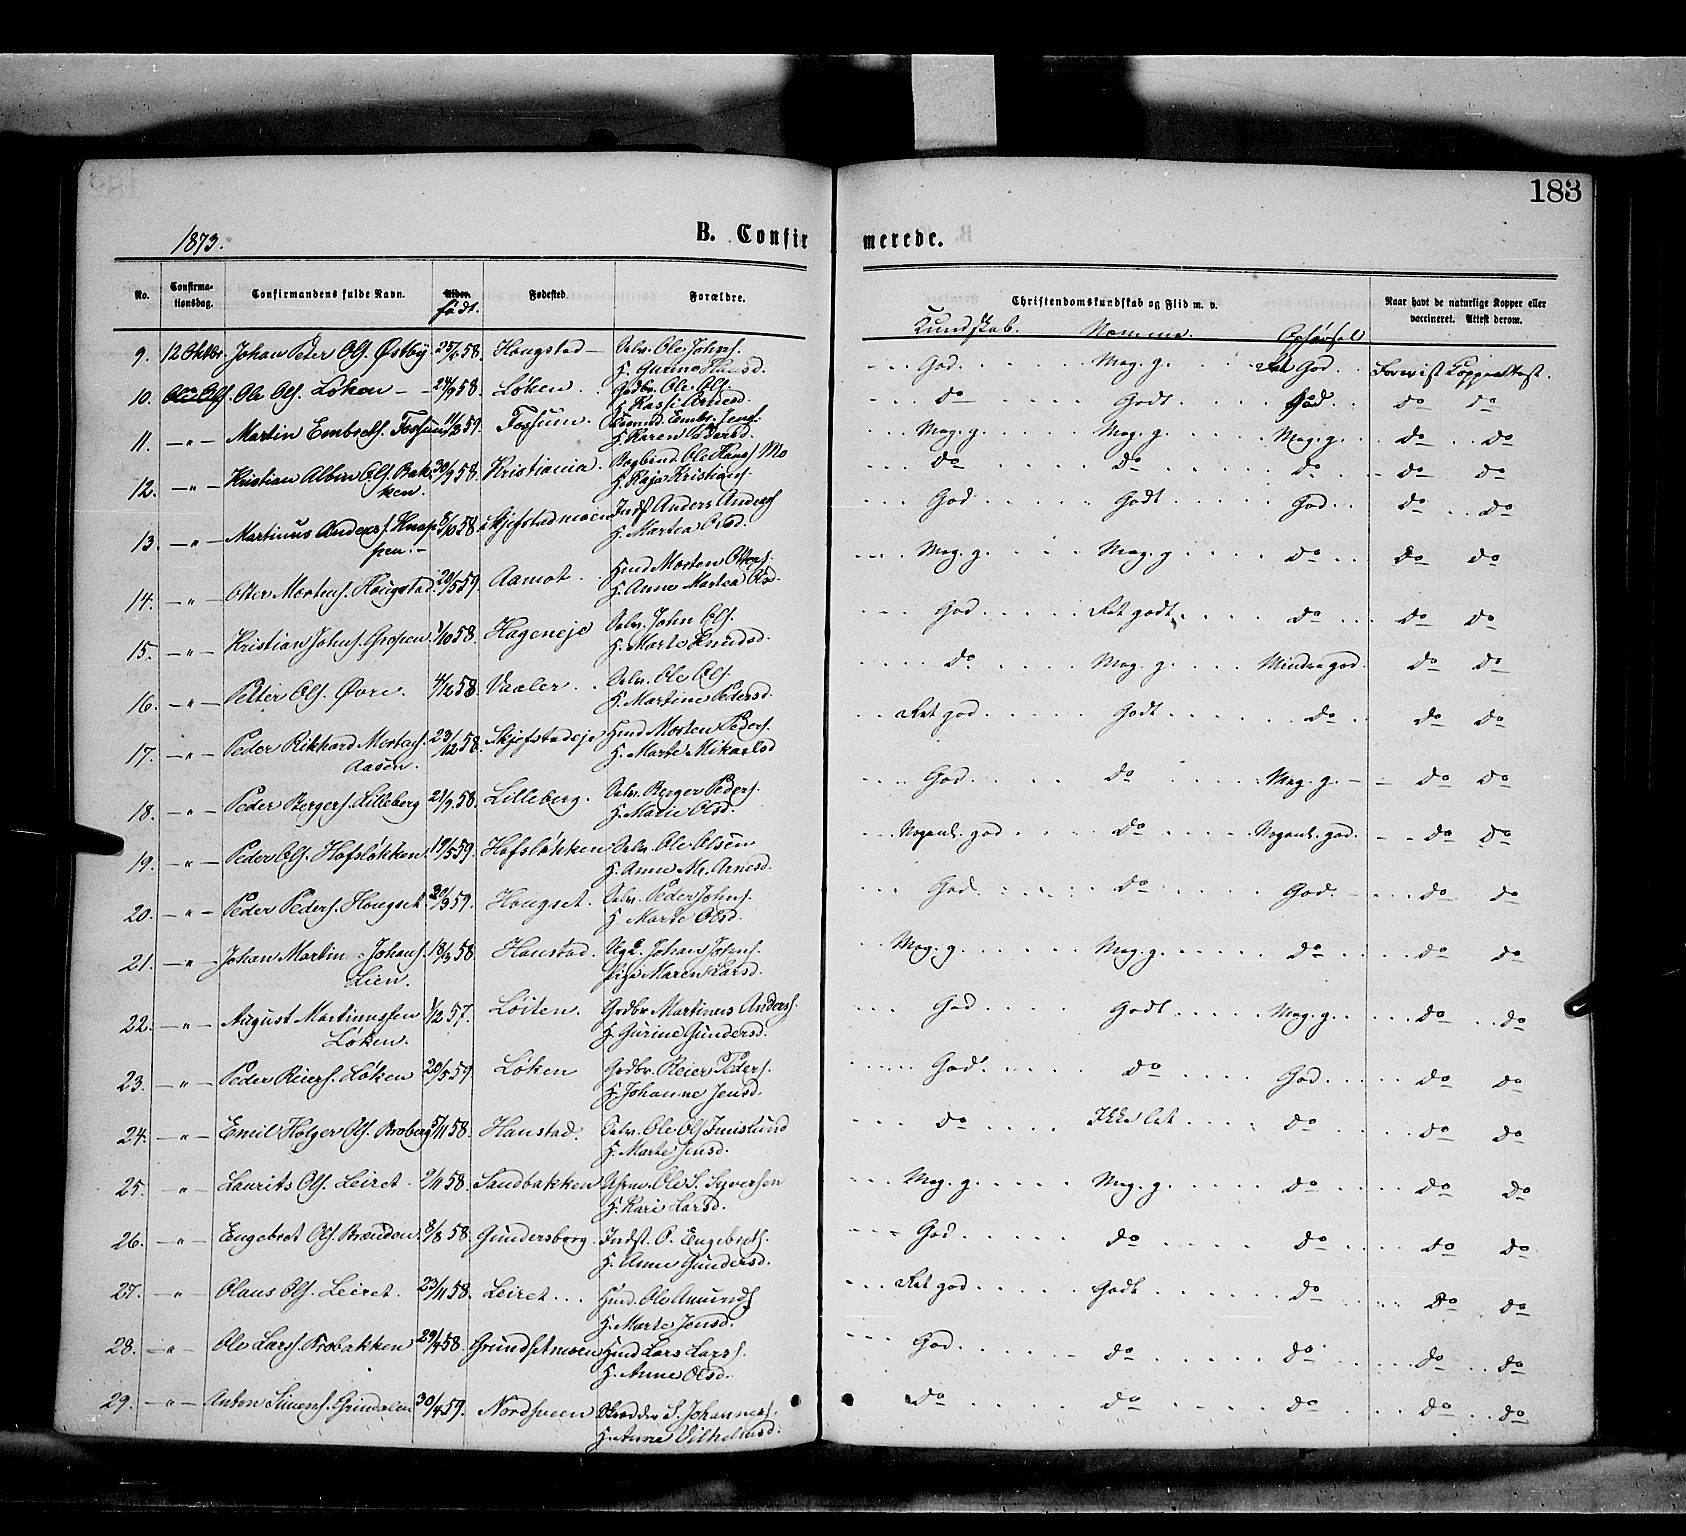 183
1873.
B. Confir
merede.
No.
Confirma-
tionsdag.
Confirmandens fulde Navn.
Alder.
født.
Fødested.
Forældre.
Christendomskundskab og Flid m. v.
Kundskab.
Opførsel
Naar havt de naturlige Kopper eller
vaccineret. Attest derom.
9. 12 Oktbr. Johan Peder Ols. Østby 25/6 58. Hougstad Selv. Ole Johns.
H. Gurine Hansd. God Meg. g. Ret God. Forevist Koppeattest.
10. Ole Ols. Løken 24/9 58. Løken. Gdbr. Ole Ols.
do Godt God do do
11. — " — Martin Embreths. Fossum 11/3 59. Fossum. Embr. Jens.
H. Karen Pedersd. Meg. g. Meg. g. Meg. g. do do
12. — " — Kristian Albin Ols. Bak- 30/9 58. Kristiania. Ole Hans. Mo
ken. H. Kaja Kristians. do do do do do
13. — " — Martinus Anders. Knap- 8/10 58. Skjefstadmoen Inds. Anders Anders.
pen. H. Martea Olsd. God Godt God do do
14. — " — Otter Mortens. Hougstad 20/5 59. Aamot. Hmd Morten Otters.
H. Anne Martea Olsd. Meg. g. Meg. g. do do do
15. — " — Kristian Johns. Gropen 1/10 58. Hageneje Selv. John Ols.
H. Marte Knudsd. God Ret godt do do do
16. — " — Petter Ols. Øvre. 4/12 58 Vaaler. Selv. Ole Ols.
H. Martine Pedersd. do Meg. g. Mindre god. do do
17. — " — Peder Rikhard Mortens. 23/12 58. Skjefstadeje Hmd Morten Peders.
Aasen. H. Marte Mikaelsd Ret god Godt do do do
18. — " — Peder Bergers. Lilleberg 21/9 58. Lilleberg. Selv. Berger Peders.
H. Marie Olsd. God do Meg. g. do do
19. — " — Peder Ols. Hofsløkken 19/5 59. Hofsløkken Selv. Ole Olsen
H. Anne M. Arnesd. Nogenl. god do Nogenl. god. do do
20. — " — Peder Peders. Hougset 30/3 59. Hougset. Selv. Peder Johns.
H. Marte Olsd. God. do God. do do
21. — " — Johan Martin Johans. 18/3 58 Hanstad. Ugd. Johan Johns.
Lien. Pige Maren Larsd. Meg. g. Meg. g. do do do
22. — " — August Martinussen 1/12 57. Løiten. Gdbr Martinus Anders.
Løken. H. Gurine Gundersd. God Godt Meg. g. do do
23. — " — Peder Reiers. Løken 20/5 59. Løken Gdbr. Reier Peders.
H. Johanne Jensd. God. do God. do do
24. — " — Emil Holger Ols. Broberg 5/11 58. Hanstad. Selv. Ole Ols. Imislund
H. Marte Jensd. do Ikke let do do do
25. — " — Laurits Ols. Leiret. 9/11 58. Sandbakken Ole S. Syversen
H. Kari Larsd. Meg. g. Meg. g. do do do
26. — " — Engebret Ols. Brænden. 8/8 58. Gundersborg. Indst. O. Engebreths.
H. Anne Gundersd. God do do do do
27. — " — Olaus Ols. Leiret. 23/11 58. Leiret. Hmd. Ole Amunds.
H. Marte Jensd. Ret god Godt do do do
28. — " — Ole Larss. Brobakken 29/4 58. Grundsetmoen Hmd Lars Larss.
H. Anne Olsd. God do do do do
29. — " — Anton Simens. Grindalen 30/4 59. Nordsveen S. Johannes.
H. Anne Vilhelmsd. do do do do do